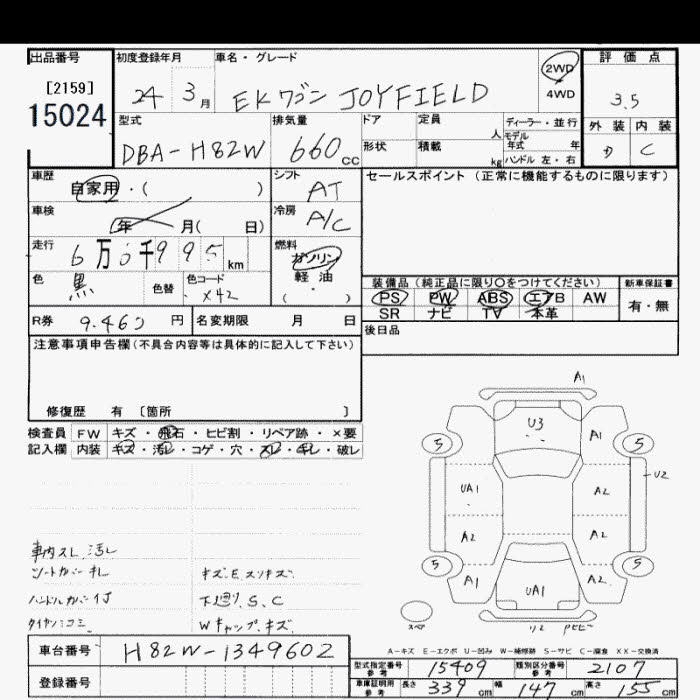 出品番号
[2159]
15024
初度登録年月
24 3月
車名・グレード
EKワゴン JOYFIELD
2WD
4WD
評価点
3.5
外装 内装
C
型式
DBA-H82W
排気量
660cc
ドア
形状
定員 人
積載 kg
ディーラー・並行
モデル
年式 年
ハンドル 左・右
車歴
自家用・( )
シフト
AT
セールスポイント (正常に機能するものに限ります)
車検
年 月( 日)
冷房
A/C
走行
6万 0千995km
燃料
ガソリン
軽・油
( )
色
黒
色替
色コード
X42
装備品 (純正品に限り〇をつけてください)
新車保証書
PS PW ABS エアB AW
有・無
SR ナビ TV 本革
R券 9.460 円
名変期限 月 日
後日品
注意事項申告欄 (不具合内容等は具体的に記入して下さい)
修復歴 有 〔箇所 〕
検査員 FW キズ・飛石・ヒビ割・リペア跡・×要
記入欄 内装 キズ・汚レ・コゲ・穴・スレ・キレ・破レ
A1
U3
A1
5 5
U2
UA1 A2
A2 A2
5 5
A1 UA1 A2
スペア
車内スレ、汚レ
シートカバーキレ
ハンドルカバー付
キズ.E.スリキズ.
下廻り.S.C
Wキャップ.キズ.
A-キズ E-エクボ U-凹み W-補修跡 S-サビ C-腐食 XX-交換済
車台番号 H82W-1349602
登録番号
型式指定番号 参考 15409
類別区分番号 参考 2107
車庫証明用 参考 長さ 339cm 幅 147cm 高さ 155cm